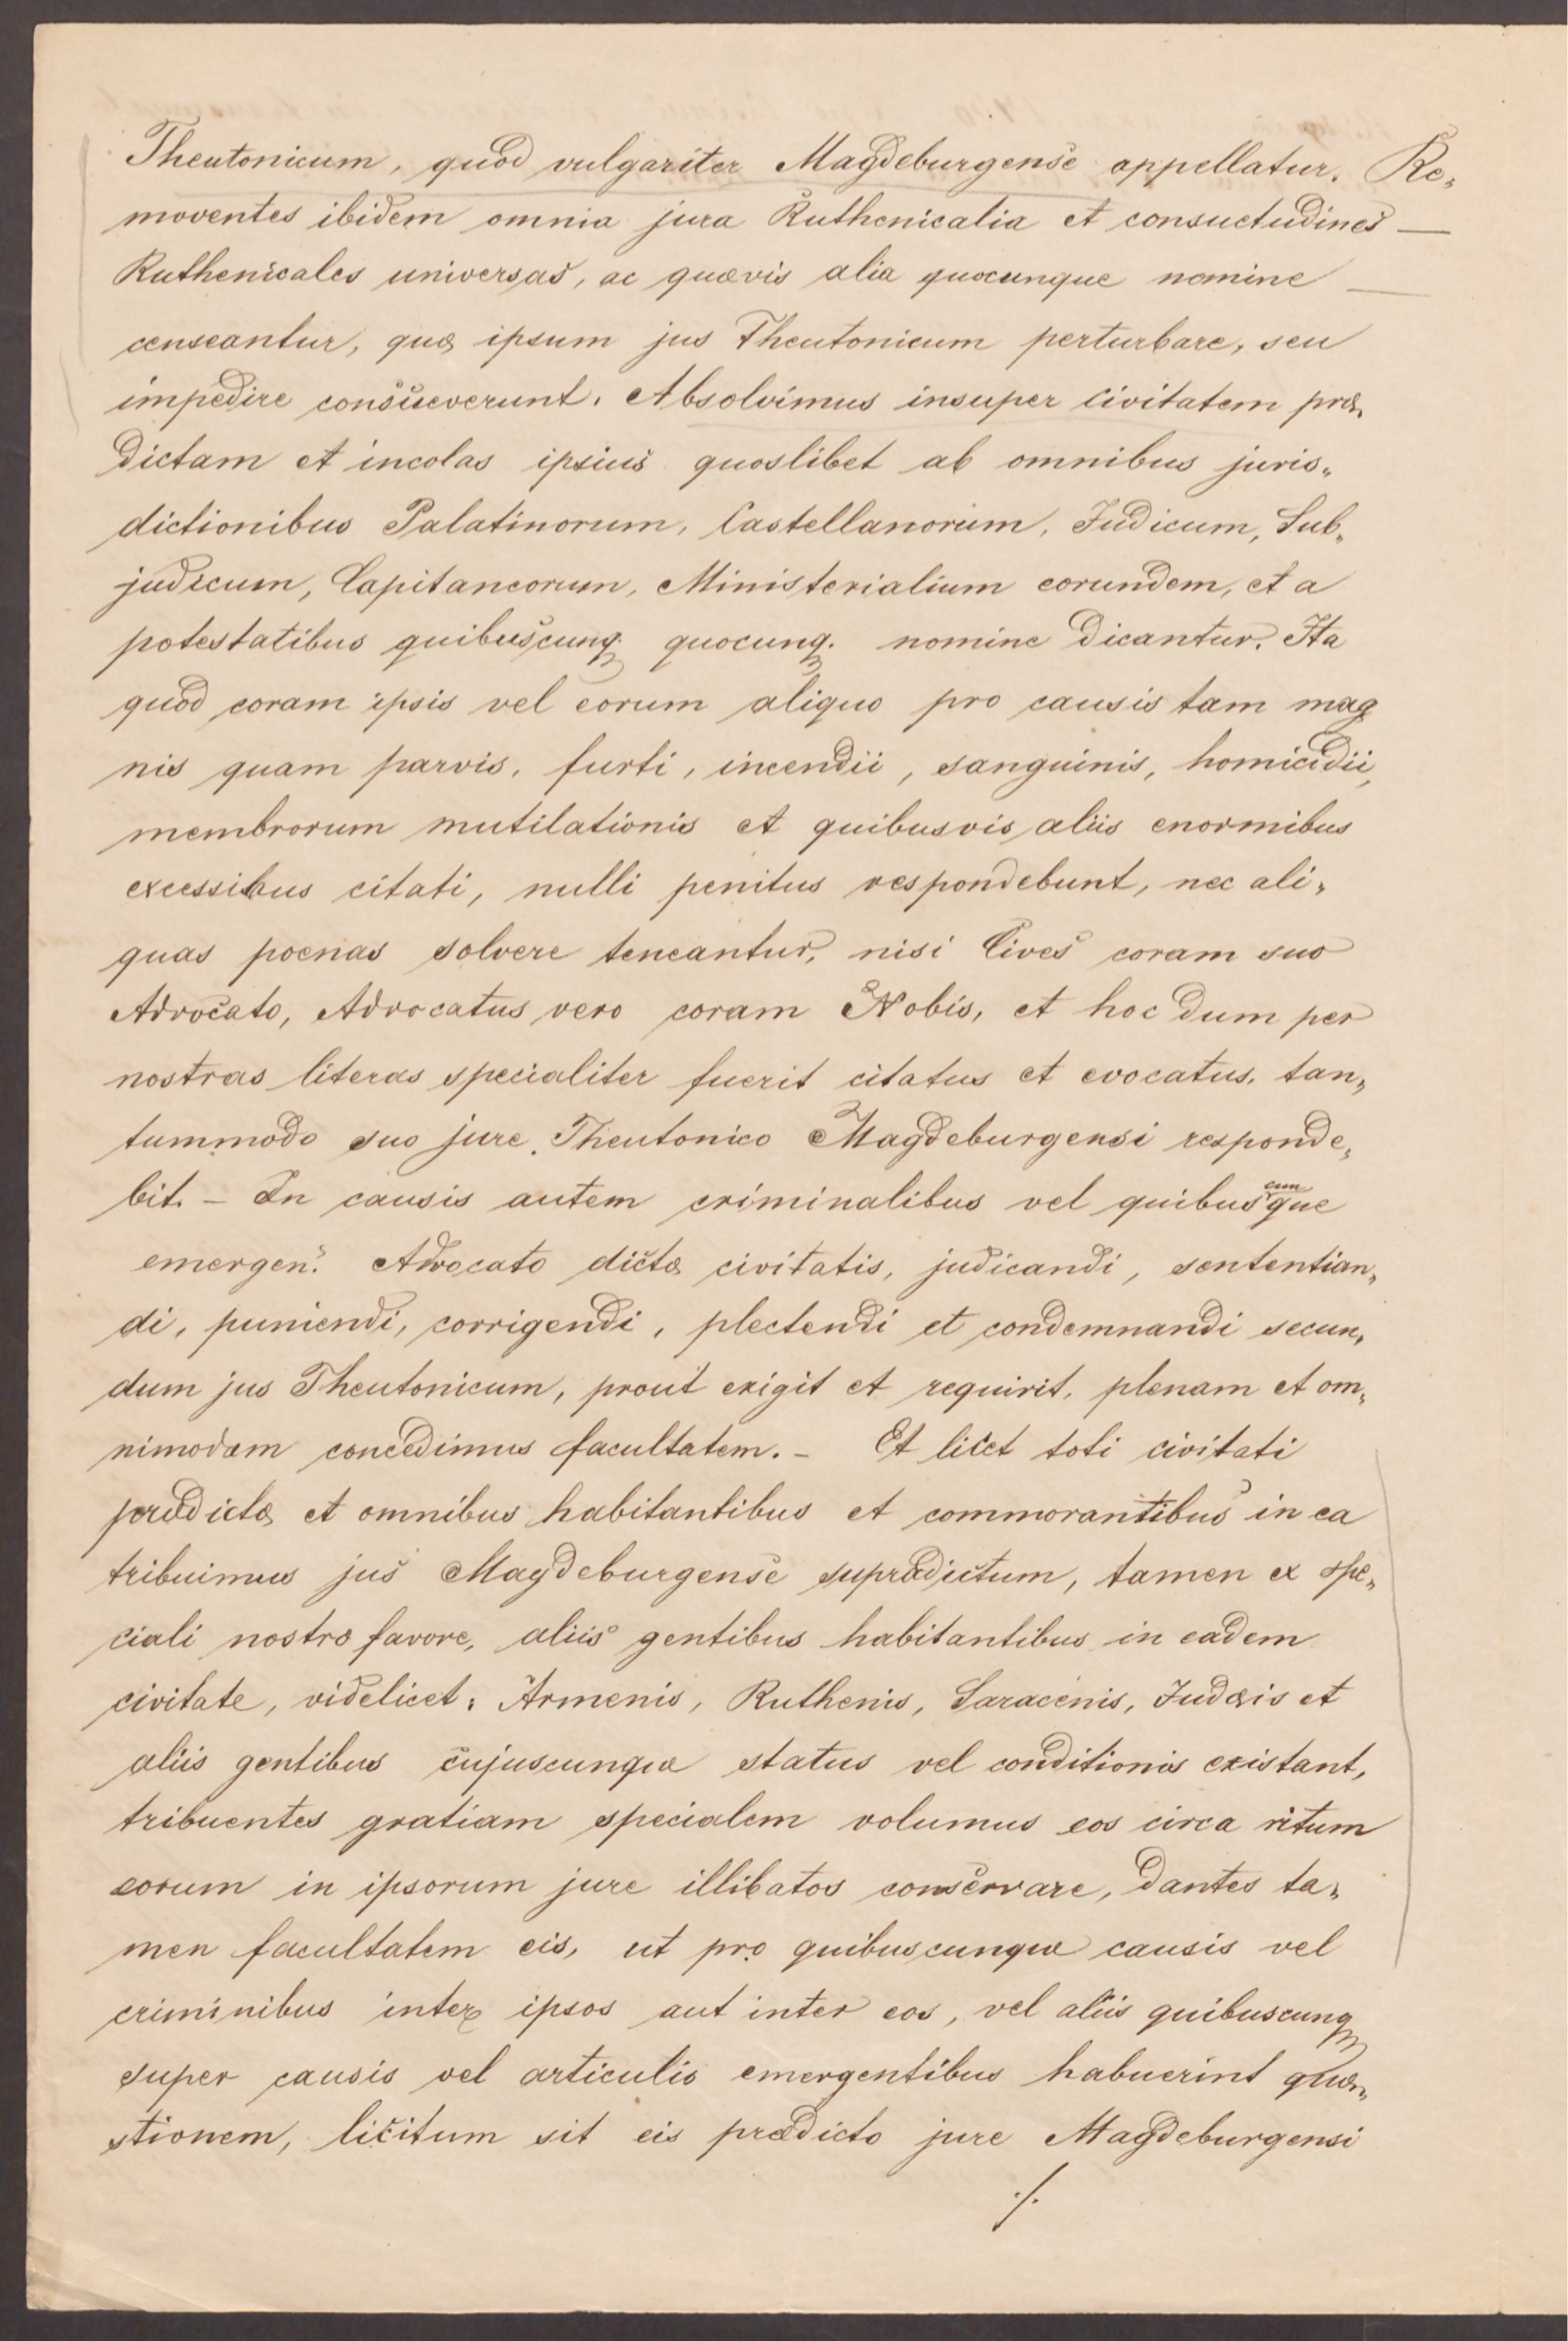 Theutonicum, quod vulgariter Magdeburgense appellatur. Re„
moventes ibidem omnia jura Ruthenicalia et consuetudines —
Ruthenicales universas, ac quævis alia quocunque nomine —
censeantur, quæ ipsum jus Theutonicum perturbare, seu
impedire consueverunt. Absolvimus insuper civitatem præ„
dictam et incolas ipsius quoslibet ab omnibus juris„
dictionibus Palatinorum, Castellanorum, Judicum, Sub„
judicum, Capitaneorum, Ministerialium eorundem, et a
potestatibus quibuscunq. quocunq. nomine dicantur. Ita
quod coram ipsis vel eorum aliquo pro causis tam mag
nis quam parvis, furti, incendii, sanguinis, homicidii,
membrorum mutilationis et quibusvis aliis enormibus
excessibus citati, nulli penitus respondebunt, nec ali„
quas poenas solvere teneantur, nisi Cives coram suo
Advocato, Advocatus vero coram Nobis, et hoc dum per
nostras literas specialiter fuerit citatus et evocatus, tan„
tummodo suo jure Theutonico Magdeburgensi responde„
bit. – In causis autem criminalibus vel quibuscunque
emergen: Advocato dictæ civitatis, judicandi, sententian„
di, puniendi, corrigendi, plectendi et condemnandi secun„
dum jus Theutonicum, prout exigit et requirit, plenam et om„
nimodam concedimus facultatem. – Et licet toti civitati
prædictæ et omnibus habitantibus et commorantibus in ea
tribuimus jus Magdeburgense supradictum, tamen ex spe„
ciali nostro favore, aliis gentibus habitantibus in eadem
civitate, videlicet: Armenis, Ruthenis, Saracenis, Judæis et
aliis gentibus cujuscunque status vel conditionis existant,
tribuentes gratiam specialem volumus eos circa ritum
eorum in ipsorum jure illibatos conservare, dantes ta„
men facultatem eis, ut pro quibuscunque causis vel
criminibus inter ipsos aut inter eos, vel aliis quibuscunq
super causis vel articulis emergentibus habuerint quæ„
stionem, licitum sit eis prædicto jure Magdeburgensi
./.